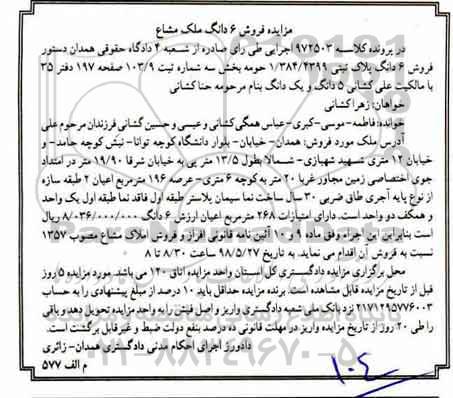 مزایده فروش ۶ دانگ ملک مشاع
در پرونده کلاسه ۹۷۲۵۰۳ اجرایی طی رای صادره از شعبه ۴ دادگاه حقوقی همدان دستور
فروش ۶ دانگ پلاک ثبتی ۱/۳۸۴/۴۳۹۹ حومه بخش سه شماره ثبت ۱۰۳/۹ صفحه ۱۹۷ دفتر ۳۵
با مالکیت علی کشانی ۵ دانگ و یک دانگ بنام مرحومه حنا کشانی
خواهان: زهرا کشانی
خوانده: فاطمه-موسی-کبری-عباس همگی کشانی و عیسی و حسین گشانی فرزندان مرحوم علی
آدرس ملک مورد فروش: همدان- خیابان- بلوار دانشگاه کوچه توانا- نبش کوچه حامد- و
خیابان ۱۲ متری شهید شهبازی- شمالا بطول ۱۳/۵ متر پی به خیابان شرقا ۱۹/۹۰ متر در امتداد
جوی اختصاصی زمین مجاور غربا ۲۰ متر به کوچه ۶ متری- عرصه ۱۹۶ مترمربع اعیان ۲ طبقه سازه
از نوع پایه آجری طاق ضربی ۳۰ سال ساخت نما سیمان پلاستر طبقه اول فاقد نما طبقه اول یک واحد
و همکف دو واحد است. دارای امتیازات ۲۶۸ مترمربع اعیان ارزش ۶ دانگ ۸/۰۳۶/۰۰۰/۰۰۰ ریال
است بنابراین این اجراء وفق ماده ۹ و ۱۰ آئین نامه قانونی افراز و فروش املاک مشاع مصوب ۱۳۵۷
نسبت به فروش آن اقدام می نماید. به تاریخ ۹۸/۵/۲۷ ساعت ۸/۳۰ تا ۸
محل برگزاری مزایده دادگستری کل استان واحد مزایده اتاق ۱۲۰ می باشد. مورد مزایده ۵ روز
قبل از تاریخ مزایده قابل مشاهده است. برنده مزایده حداقل باید ۱۰ درصد از مبلغ پیشنهادی را به حساب
۲۱۷۱۲۹۵۷۷۶۰۰۳ نزد بانک ملی شعبه دادگستری واریز و اصل فیش را به واحد مزایده تحویل دهد و باقی
را طی ۲۰ روز از تاریخ مزایده واریز در مهلت قانونی ده درصد بنفع دولت ضبط و غیرقابل برگشت است.
دادورز اجرای احکام مدنی دادگستری همدان- زائری
م الف ۵۷۷
۱۰۴
۰۲۱-۸۸۳۴۹۶۷۰-۵